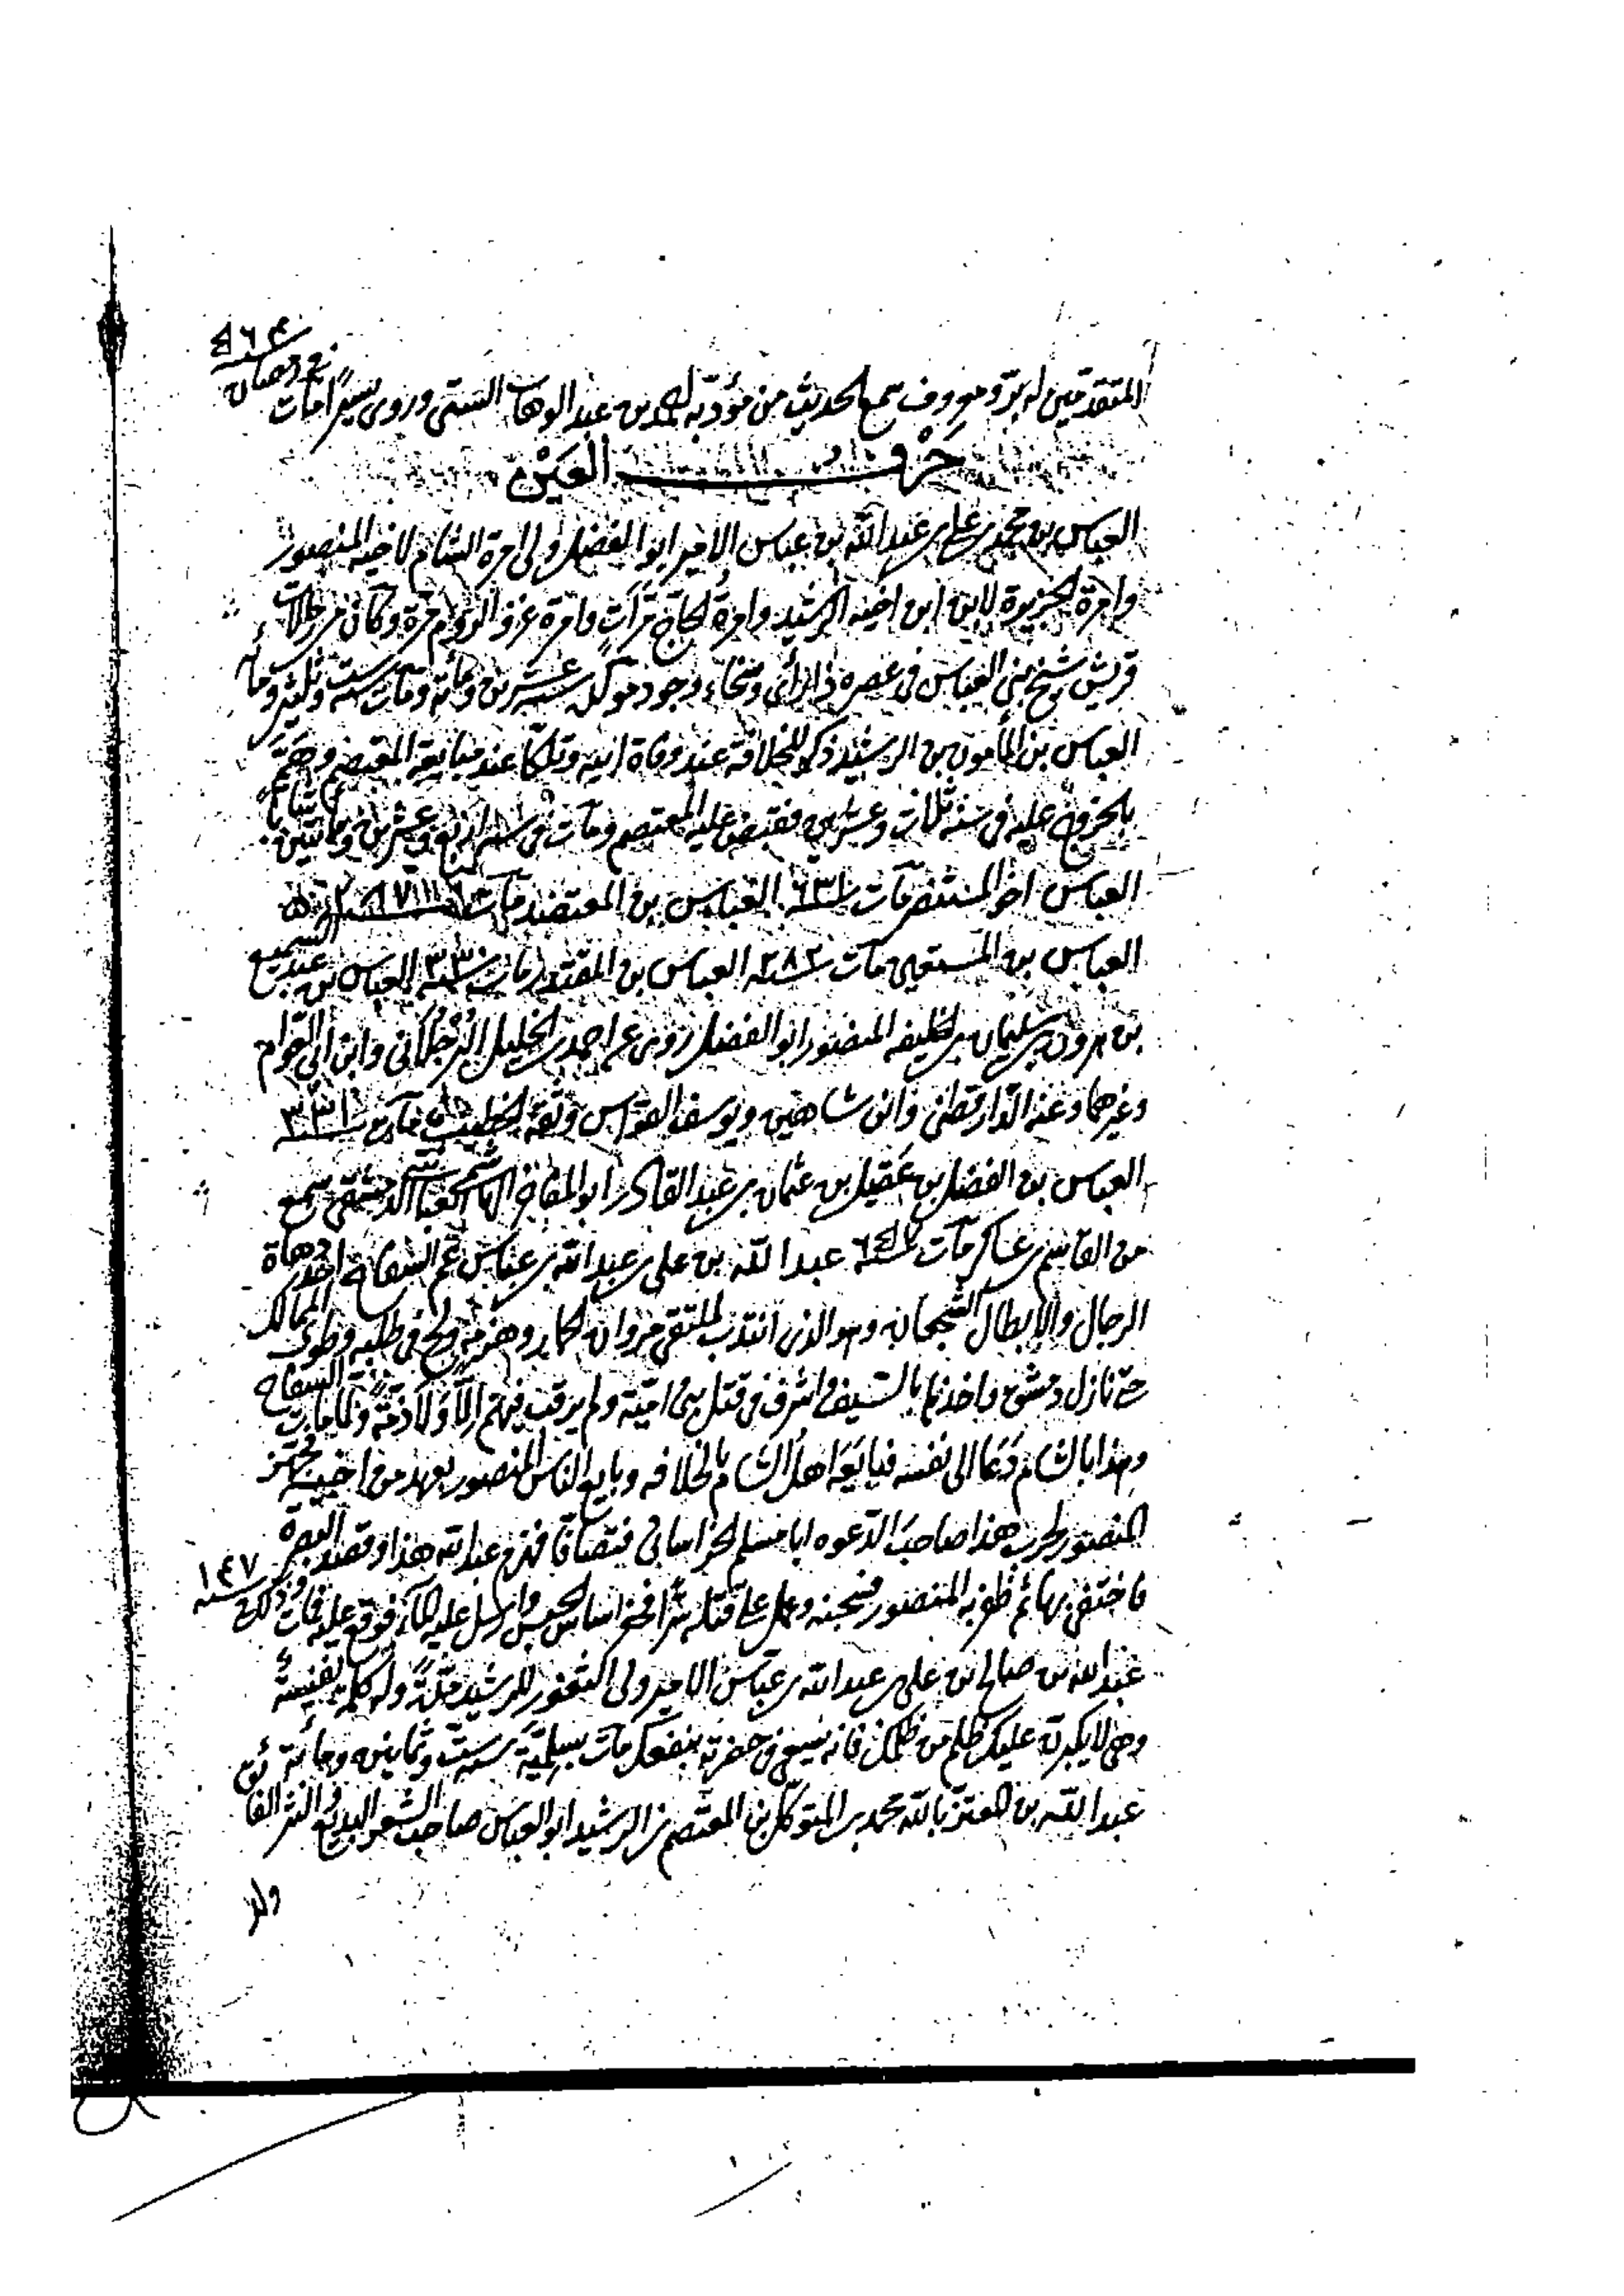 المتقدمين له بر ومعروف سمع الحديث من مؤدبه احمد بن عبد الوهاب السيبي وروى يسيرًا مات
في رمضان
حَرْف العَيْن
العباس بن محمد بن علي بن عبد الله بن عباس الامير ابو الفضل ولي امرة الشام لاخيه المنصور
وامرة الجزيرة لابن اخيه الرشيد وامرة الحاج مرّات وامرة غزو الروم مرة وكان من رجالات
قريش وشيخ بني العباس في عصره ذا رأى وسخاء وجود مولده سنة عشرين ومائة ومات سنة ست وثمانين ومائة
العباس بن المأمون بن الرشيد ذكر للخلافة عند وفاة ابيه وتلكّأ عند مبايعة المعتصم وهَمّ
بالخروج عليه في سنة ثلاث وعشرين فقبض عليه المعتصم ومات في سنة اربع وعشرين ومائتين
العباس اخو المستنصر مات سنة ٦٣١ العباس بن المعتضد مات
العباس بن المستعين مات سنة ٢٨٢ العباس بن المقتدر مات سنة العباس بن عبد السميع
بن هرون بن سليمان بن الخليفه المنصور ابو الفضل روى عن احمد بن الخليل البُرْجُلاني وابن ابي العوام
وغيرهما وعنه الدارقطني وابن شاهين ويوسف القواس وثقه الخطيب مات سنة ٣٣١
العباس بن الفضل بن عَقيل بن عثمان بن عبد القاهر ابو المفاخر الهاشمي العباسي الدمشقي سمع
من القاسم بن عساكر مات سنة عبد الله بن علي بن عبد الله بن عباس عم السفاح احد دهاة
الرجال والابطال الشجعان وهو الذي انتدب لملتقى مروان الحمار وهزمه ولج في طلبه وطوى الممالك
حتى نازل دمشق واخذها بالسيف واسرف في قتل بني امية ولم يرقب فيهم إلاًّ ولا ذمةً ولما مات السفاح
وهذا بالشام دَعَا الى نفسه فبايعَهَ اهل الشام بالخلافه وبايع الناس المنصور بعهد من اخيه فجهّز
المنصور لحرب هذا صاحبَ الدعوه ابا مسلم الخراساني فتصافّا فهزم عبد الله هذا وقصد البصرة
فاختفى بها ثم ظفر به المنصور فسجنه وعمل على قتله سرًّا فحفر اساس الحبس وارسل عليه الماء فوقع عليه فمات وذلك في سنة ١٤٧
عبد الله بن صالح بن علي بن عبد الله بن عباس الامير ولي الثغور للرشيد مدّةً وله كلمة نفيسة
وهي لا يكبرنّ عليك ظلم من ظلمك فانه يسعى في مضرته بنفعك مات بسلميّة سنة ست وثمانين ومائة
عبد الله بن المعتز بالله محمد بن المتوكل بن المعتصم بن الرشيد ابو العباس صاحب الشعر البديع والنثر الفائق
ولد